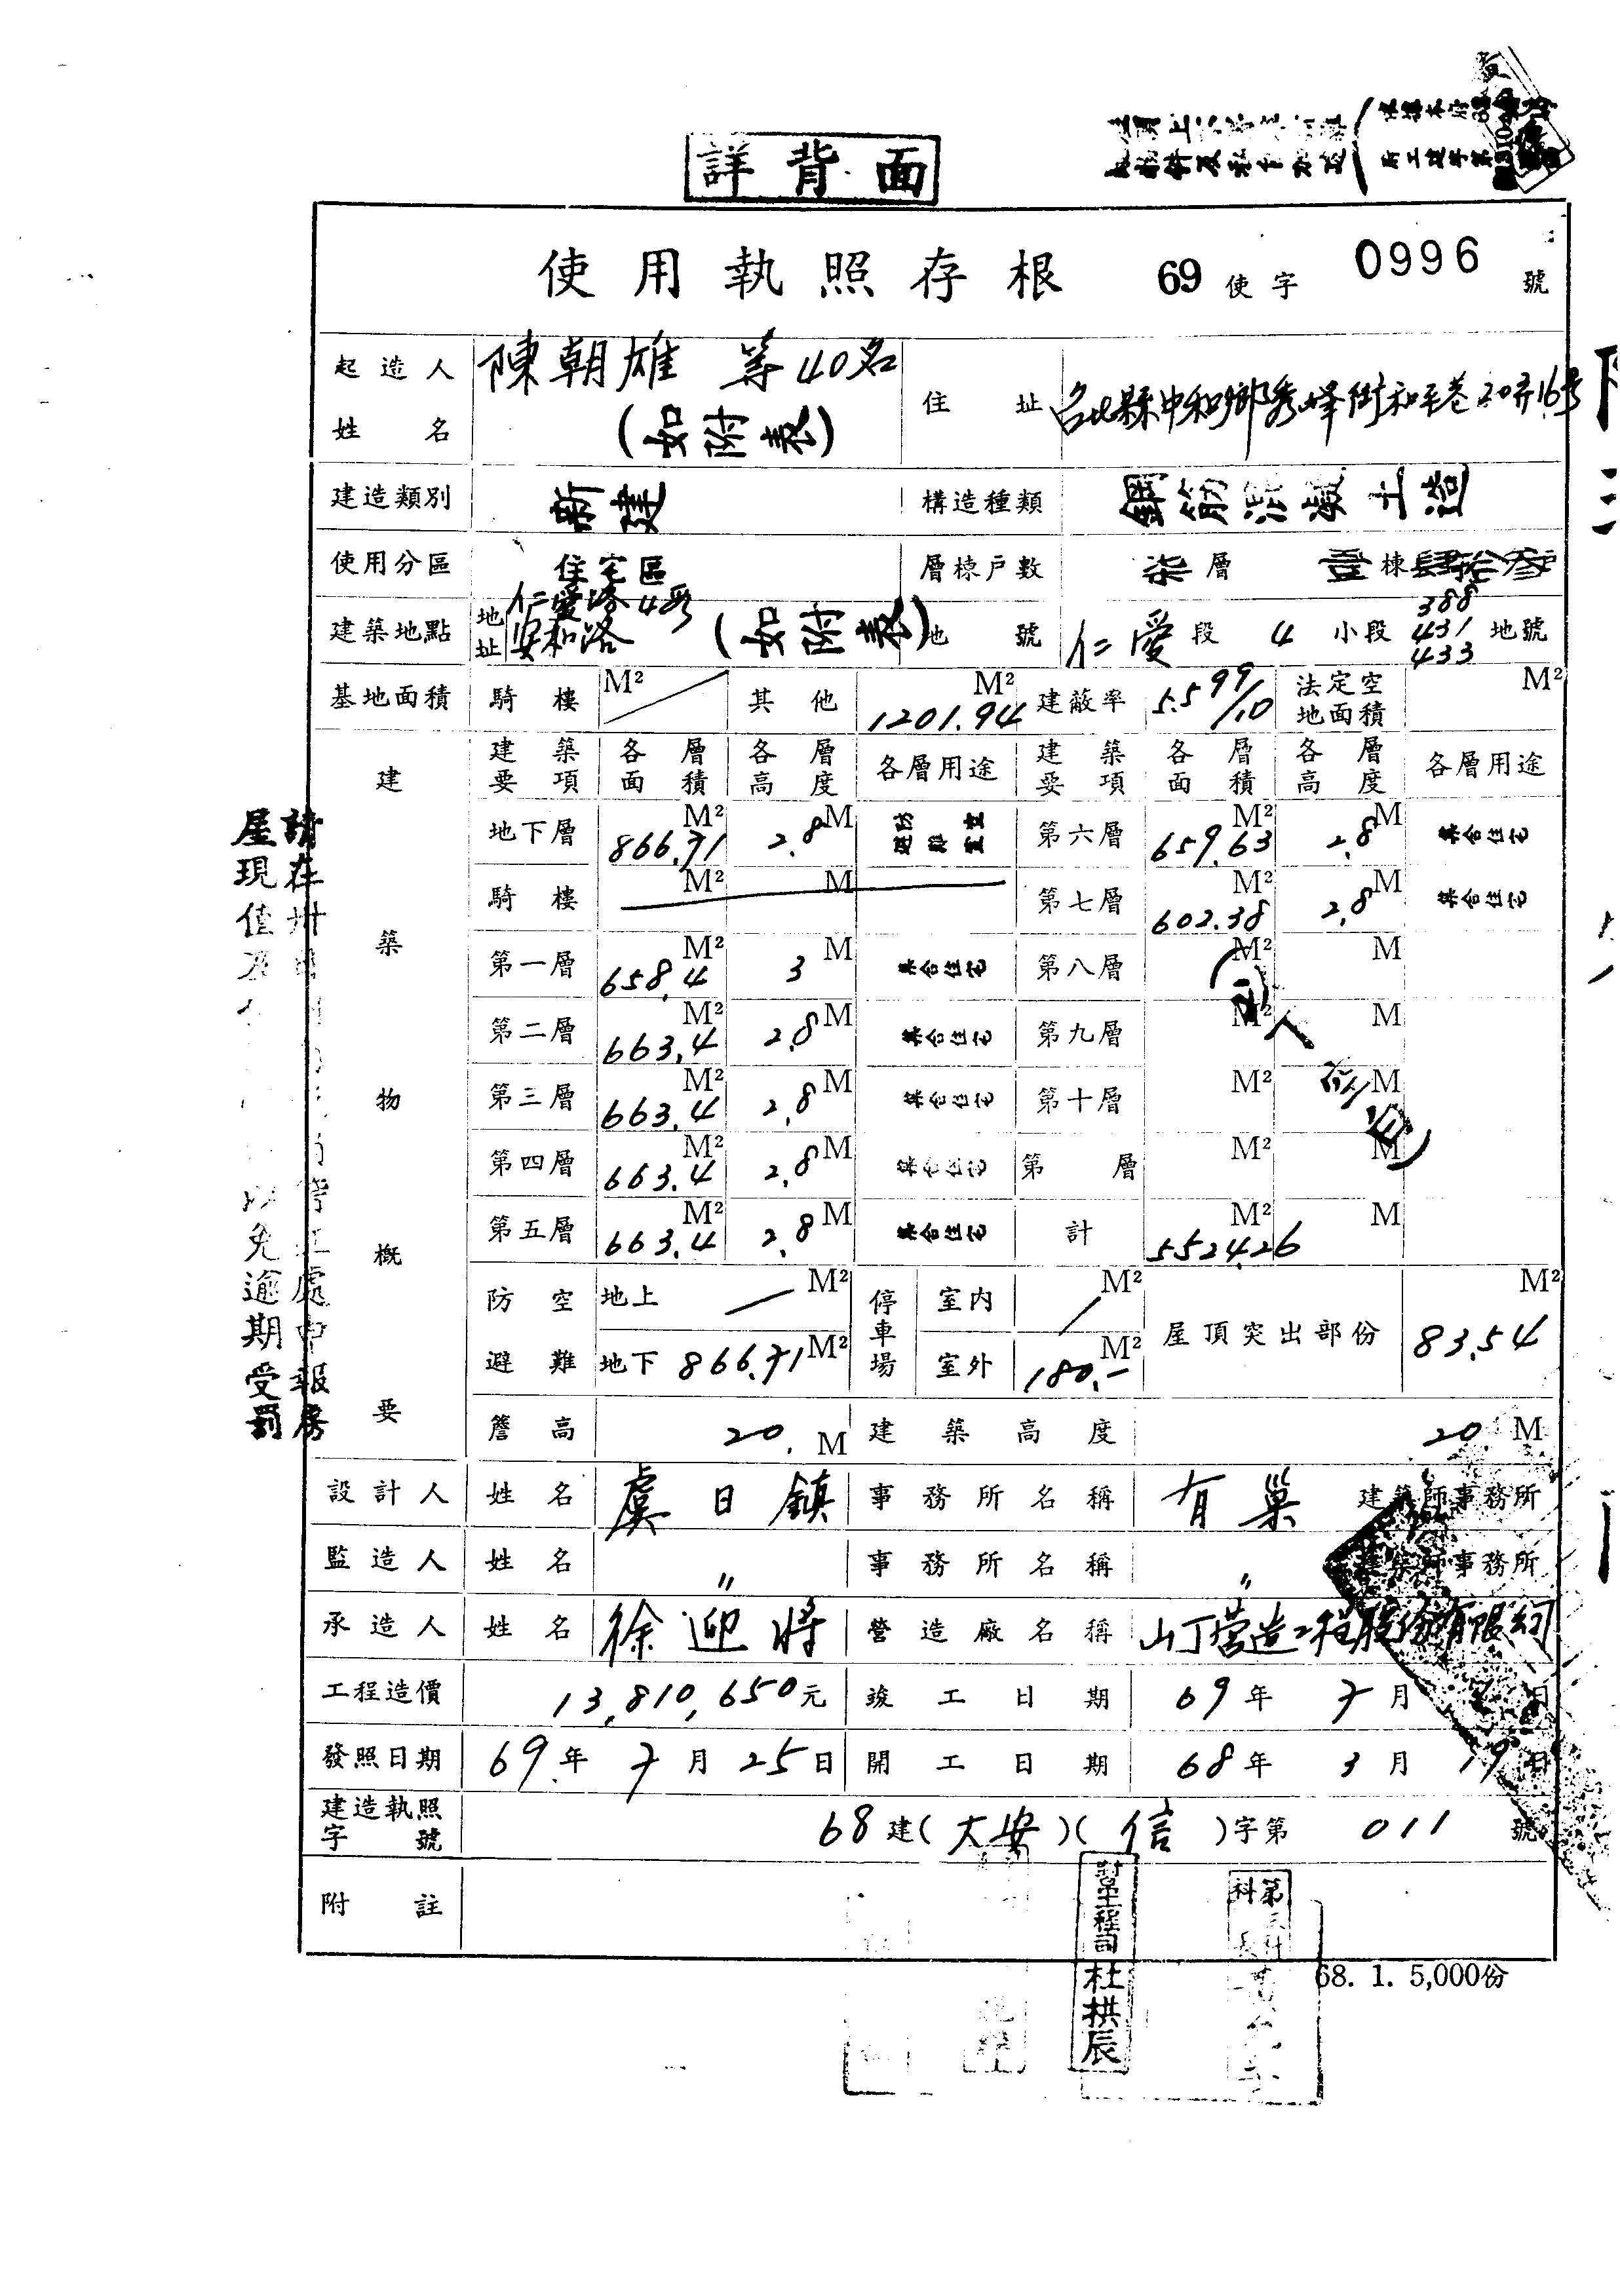 詳背面
使用執照存根 69 使字 0996 號
起造人姓名 陳朝雄 等40名 (如附表) 住址 台北縣中和鄉秀峰街和平巷20弄16号
建造類別 新建 構造種類 鋼筋混凝土造
使用分區 住宅區 層棟戶數 柒層 壹棟肆拾叁
建築地點 地址 仁愛路4段 安和路 (如附表) 地號 仁愛段 4 小段 388 431 433 地號
基地面積 騎樓 M² 其他 1201.94 M² 建蔽率 5.599/10 法定空地面積 M²
建築物概要
建築要項 各層面積 各層高度 各層用途 建築要項 各層面積 各層高度 各層用途
地下層 866.71 M² 2.8 M 防空避難室 第六層 659.63 M² 2.8 M 集合住宅
騎樓 M² M 第七層 602.38 M² 2.8 M 集合住宅
第一層 658.4 M² 3 M 集合住宅 第八層 M² M
第二層 663.4 M² 2.8 M 集合住宅 第九層 M² M
第三層 663.4 M² 2.8 M 集合住宅 第十層 M² M
第四層 663.4 M² 2.8 M 集合住宅 第 層 M² M
第五層 663.4 M² 2.8 M 集合住宅 計 5524.26 M² M
(以下空白)
防空避難 地上 M² 停車場 室內 M² 屋頂突出部份 83.54 M²
地下 866.71 M² 室外 180.- M²
簷高 20. M 建築高度 20 M
設計人 姓名 虞日鎮 事務所名稱 有巢 建築師事務所
監造人 姓名 〃 事務所名稱 〃 建築師事務所
承造人 姓名 徐迎將 營造廠名稱 山丁营造工程股份有限公司
工程造價 13,810,650元 竣工日期 69年 7月 日
發照日期 69年 7月 25日 開工日期 68年 3月 19日
建造執照字號 68建(大安)(信)字第 011 號
附註
幫工程司 杜拱辰
第 科
68. 1. 5,000份